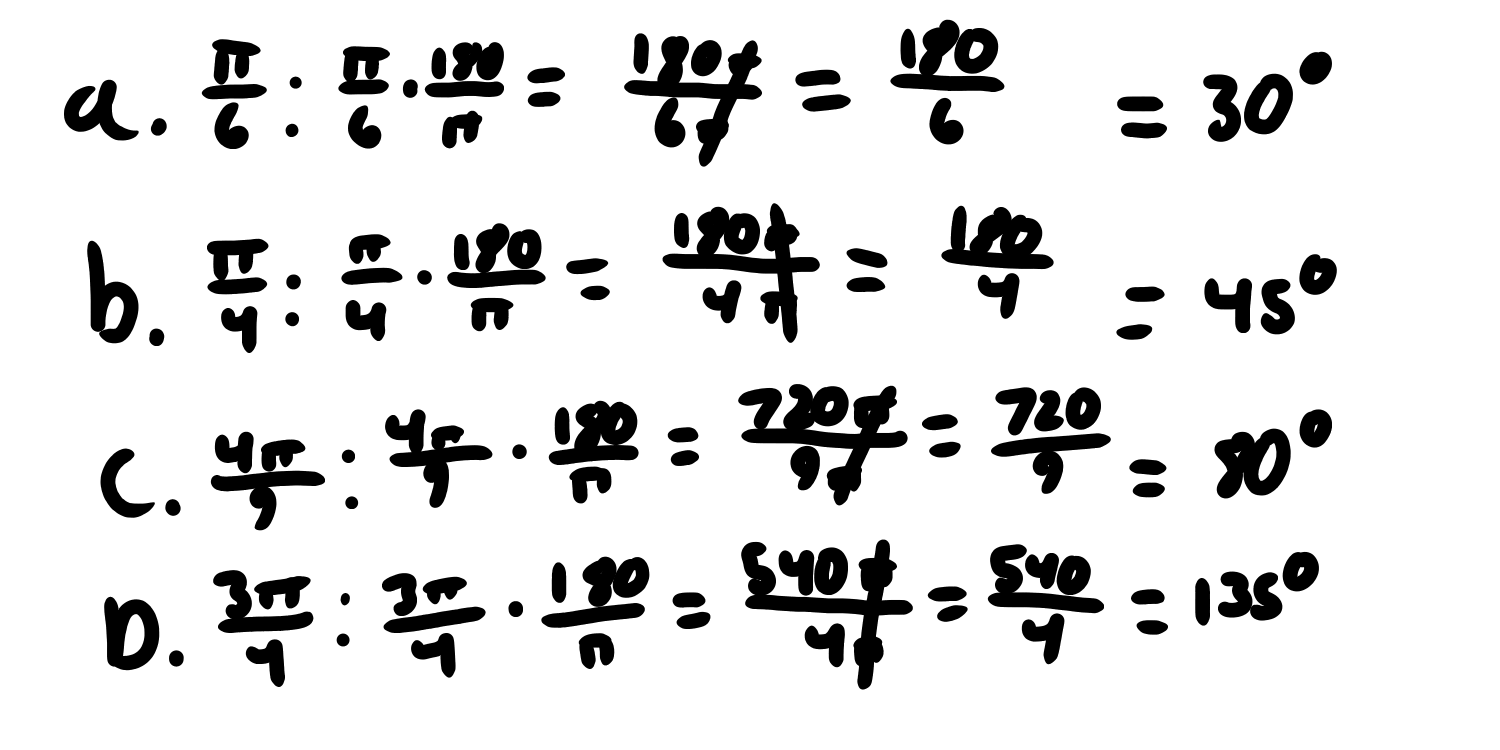 a. π/6 : π/6 · 180/π = 180π/6π = 180/6 = 30°
b. π/4 : π/4 · 180/π = 180π/4π = 180/4 = 45°
C. 4π/9 : 4π/9 · 180/π = 720π/9π = 720/9 = 80°
D. 3π/4 : 3π/4 · 180/π = 540π/4π = 540/4 = 135°